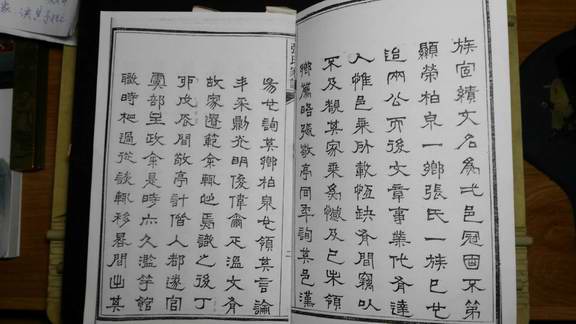 族固績文名為弌邑冠固不第
顯榮柏泉一鄉張氏一族已也
迨兩公而後文章事業代有達
人惟邑乘所載恆缺有間竊以
不及觀其家乘為憾及己未領
鄉薦晤張敬亭同年詢其邑漢
陽也詢其鄉柏泉也領其言論
丰采光明俊偉爾疋溫文有
故家遺範余輒心焉識之後丁
卯戊辰間敬亭計偕入都遂官
部余是時亦久濫竽館
職時相過從談輒移晷間出其
二